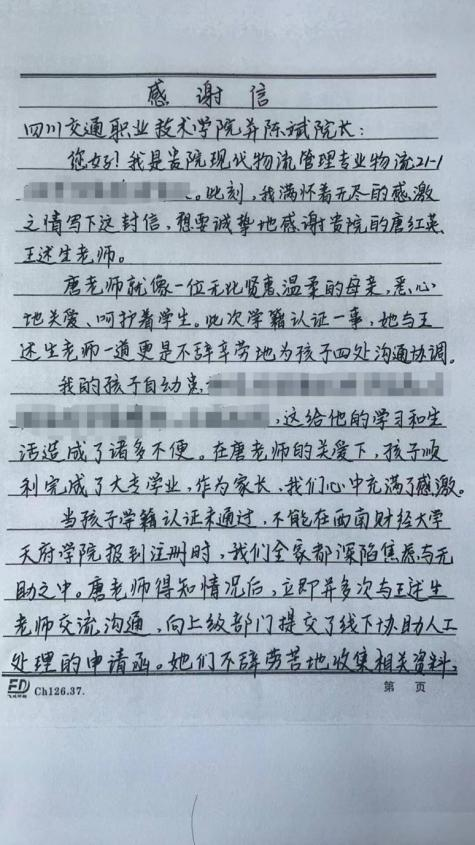 感谢信
四川交通职业技术学院并陈斌院长:
您好!我是贵院现代物流管理专业物流21-1
。此刻,我满怀着无尽的感激
之情写下这封信,想要诚挚地感谢贵院的唐红英、
王述生老师。
唐老师就像一位无比贤惠、温柔的母亲,悉心
地关爱、呵护着学生。此次学籍认证一事,她与王
述生老师一道更是不辞辛劳地为孩子四处沟通协调。
我的孩子自幼患
,这给他的学习和生
活造成了诸多不便。在唐老师的关爱下,孩子顺
利完成了大专学业,作为家长、我们心中充满了感激。
当孩子学籍认证未通过,不能在西南财经大学
天府学院报到注册时,我们全家都深陷焦虑与无
助之中。唐老师得知情况后,立即并多次与王述生
老师交流沟通,向上级部门提交了线下协助人工
处理的申请函。她们不辞劳苦地收集相关资料、
FD Ch126.37. 第 页